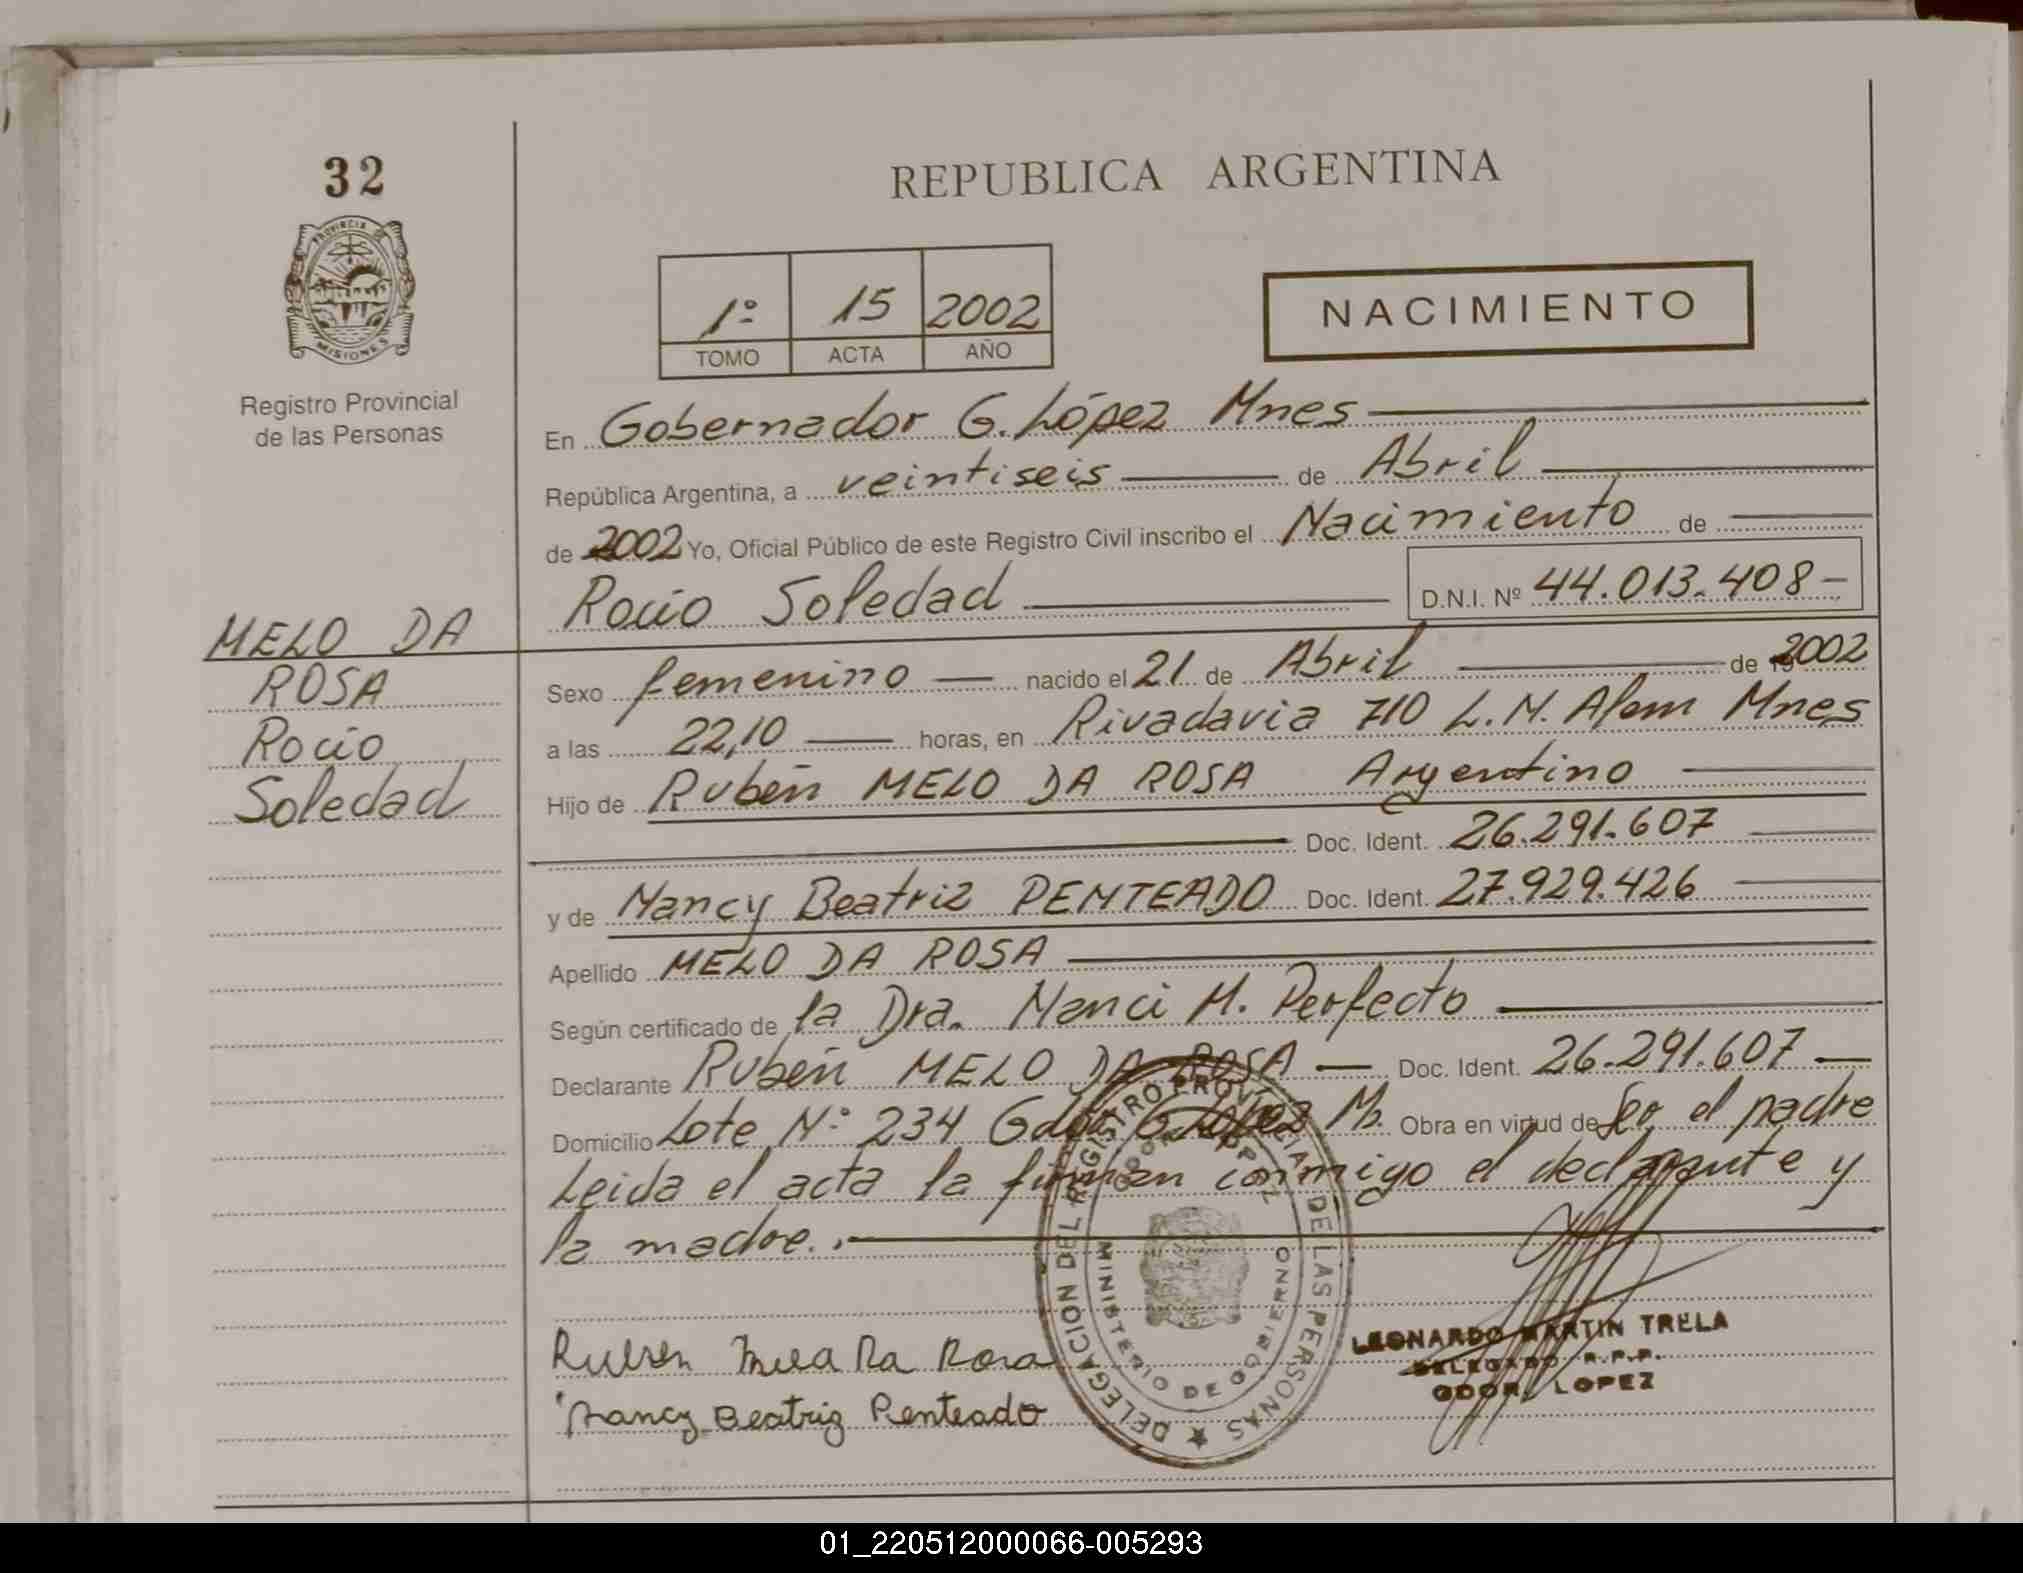 32
PROVINCIA DE
MISIONES
Registro Provincial
de las Personas
MELO DA
ROSA
Rocío
Soledad
REPUBLICA ARGENTINA
1º 15 2002
TOMO ACTA AÑO
NACIMIENTO
En Gobernador G. López Mnes
República Argentina, a veintiseis de Abril
de 2002 Yo, Oficial Público de este Registro Civil inscribo el Nacimiento de
Rocío Soledad D.N.I. Nº 44.013.408-
Sexo femenino nacido el 21 de Abril de 2002
a las 22,10 horas, en Rivadavia 710 L.N. Alem Mnes
Hijo de Rubén MELO DA ROSA Argentino
Doc. Ident. 26.291.607
y de Nancy Beatriz PENTEADO Doc. Ident. 27.929.426
Apellido MELO DA ROSA
Según certificado de la Dra. Nanci M. Perfecto
Declarante Rubén MELO DA ROSA Doc. Ident. 26.291.607
Domicilio Lote Nº 234 Gdor G. López Ms. Obra en virtud de Ser el padre
Leida el acta la firman conmigo el declarante y
la madre.
DELEGACION DEL REGISTRO PROVINCIAL DE LAS PERSONAS
GDOR. LOPEZ
MINISTERIO DE GOBIERNO
Ruben Melo Da Rosa
Nancy Beatriz Penteado
LEONARDO MARTIN TRELA
DELEGADO R.P.P.
GDOR. LOPEZ
01_220512000066-005293